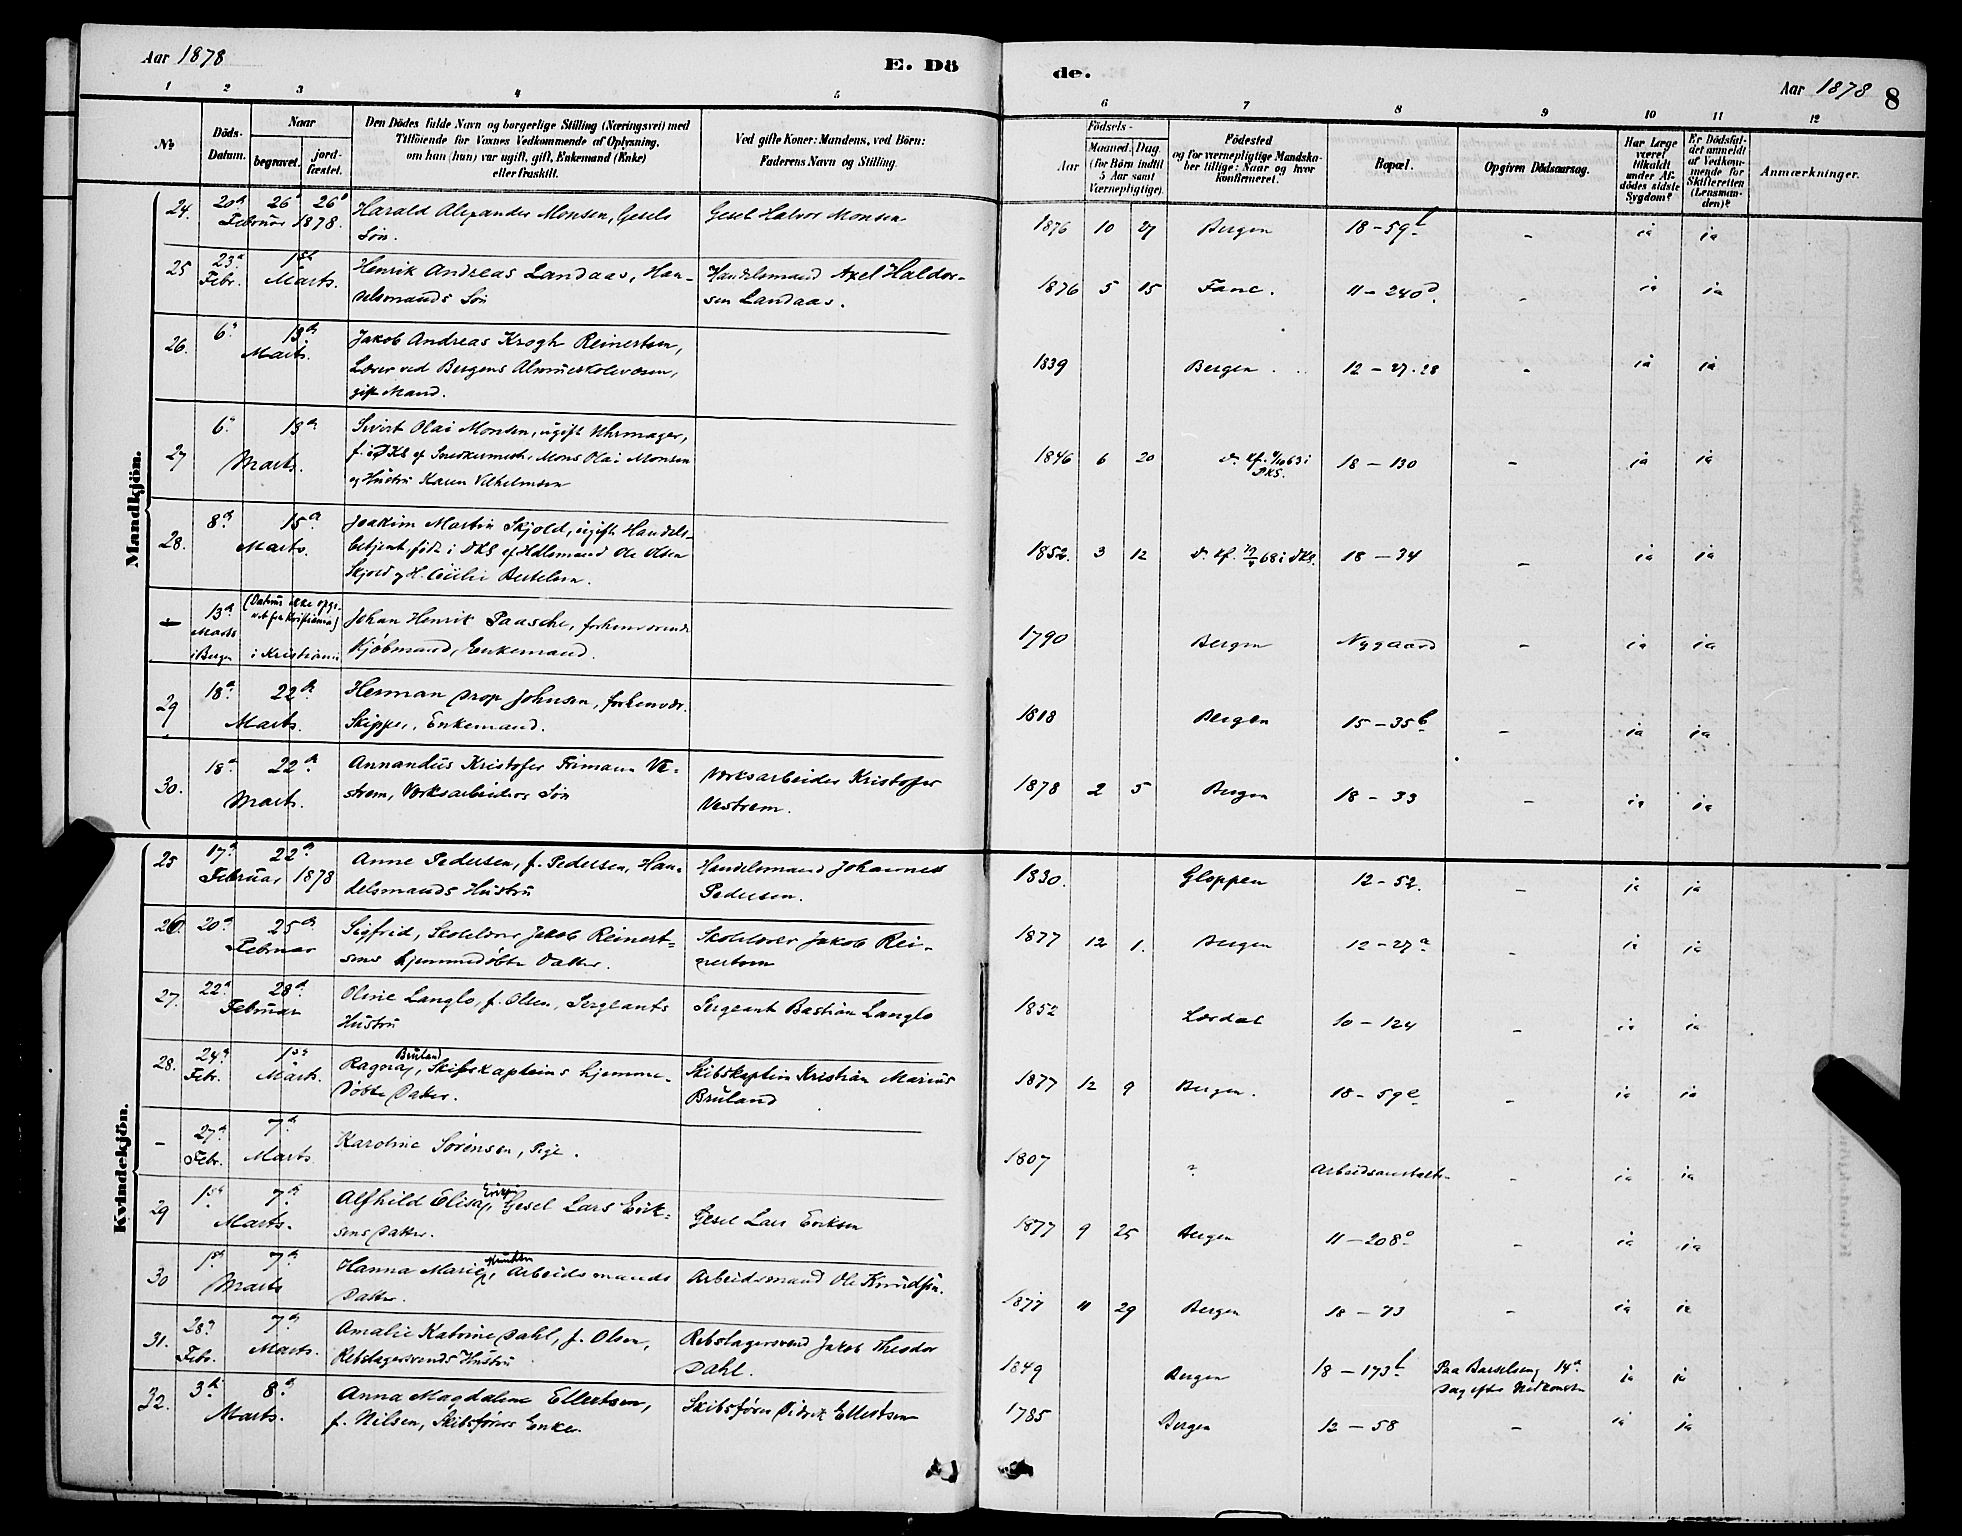 Aar 1878
E. Dö
de.
Aar 1878
8
1 2 3 4 5 6 7 8 9 10 11 12
No
Döds-
Datum.
Naar
begravet.
jord-
fæstet.
Den Dödes fulde Navn og borgerlige Stilling (Næringsvei) med
Tilföiende for Voxnes Vedkommende af Oplysning,
om han (hun) var ugift, gift, Enkemand (Enke)
eller fraskilt.
Ved gifte Koner: Mandens, ved Börn:
Faderens Navn og Stilling.
Födsels-
Aar
Maaned. Dag.
(for Börn indtil
5 Aar samt
Værnepligtige).
Födested
og for værnepligtige Mandska-
ber tillige: Naar og hvor
konfirmeret.
Bopæl.
Opgiven Dödsaarsag.
Har Læge
været
tilkaldt
under Af-
dödes sidste
Sygdom?
Er Dödsfal-
det anmeldt
af Vedkom-
mende for
Skifteretten
(Lensman-
den)?
Anmærkninger.
Mandkjön.
24. 20de 26de 26de Harald Alexander Monsen, Gesels Gesel Halvor Monsen 1876 10 27 Bergen 18 - 59b - ja ja
Februar 1878. Søn.
25 23de 1ste Henrik Andreas Landaas, Han- Handelsmand Axel Haldor- 1876 5 15 Fane. 11 - 240d. - ja ja
Febr. Marts. delsmands Søn sen Landaas.
26. 6te 13de Jakob Andreas Krogh Reinertsen, 1839 Bergen 12 - 27.28 - ja ja
Marts. Lærer ved Bergens Almueskolevæsen,
gift Mand.
27 6te 13de Sivert Olai Monsen, ugift Uhrmager, 1846 6 20 18 - 130 - ja ja
Marts. f. i DKS af Snedkermest. Mons Olai Monsen
og Hustru Karen Vilhelmsen
28. 8de 15de Joakim Martin Skjold, ugift Handels- 1852. 3 12 18 - 34 - ja ja
Marts. betjent, født i DKS af Hdlsmand Ole Olsen
Skjold og H. Cecilie Bertelsen.
- 13de (Datum ikke opgi-
vet fra Kristiania) Johan Henrik Paasche, forhenværende 1790 Bergen Nygaard - ja ja
Marts
i Bergen i Kristiania Kjøbmand, Enkemand.
29 18de 22de Herman Drop Johnsen, forhenvær. 1818 Bergen 15 - 35b - ja ja
Marts. Skipper, Enkemand.
30. 18de 22de Annandus Kristofer Frimann Ve- Værksarbeider Kristofer 1878 2 5 Bergen 18 - 33 - ja ja
Marts. strem, Værksarbeiders Søn Vestrem.
Kvindekjön.
25 17de 22de Anne Pedersen, f. Pedersen, Han- Handelsmand Johannes 1830. Gloppen 12 - 52. - ja ja
Februar 1878 delsmands Hustru Pedersen.
26. 20de 25de Sigfrid, Skolelærer Jakob Reinert- Skolelærer Jakob Rei- 1877 12 1. Bergen 12 - 27a - ja ja
Februar sens hjemmedøbte Datter. nertsen
27. 22de 28de Oline Langlo, f. Olsen, Sergeants Sergeant Bastian Langlo 1852 Lærdal 10 - 124 - ja ja
Februar Hustru
28. 24de 1ste Ragna Bruland, Skibskapteins hjemme- Skibskaptein Kristian Marius 1877 12 9 Bergen. 18 - 59e - ja ja
Febr. Marts. døbte Datter. Bruland
- 27de 7de Karoline Sørensen, Pige. 1807 " Arbeidsanstalten - ja ja
Febr. Marts
29 1ste 7de Alfhild Elisa, Gesel Lars Erik- Gesel Lars Eriksen 1877 9 25 Bergen 11 - 208a - ja ja
Marts. sens Datter.
30 1ste 7de Hanna Marie Knudsen, Arbeidsmands Arbeidsmand Ole Knudsen. 1877 11 29 Bergen 18 - 73 - ja ja
Marts Datter.
31. 28de 7de Amalie Katrine Dahl, f. Olsen, Rebslagersvend Jakob Theodor 1849 Bergen 18 - 173b Paa Barselseng 14de ja ja
Febr. Marts. Rebslagersvends Hustru Dahl. Dag efter Nedkomsten
32. 3de 8de Anna Magdalene Ellertsen, Skibsfører Didrik Ellertsen 1785 Bergen 12 - 58 - ja ja
Marts. f. Nilsen, Skibsførers Enke.